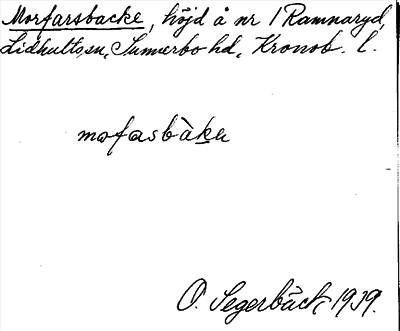 Morfarsbacke, höjd å nr 1 Ramnaryd,
Lidhults sn, Sunnerbo hd, Kronob. l.
mofasbàkɐ
O. Segerbäck, 1939.